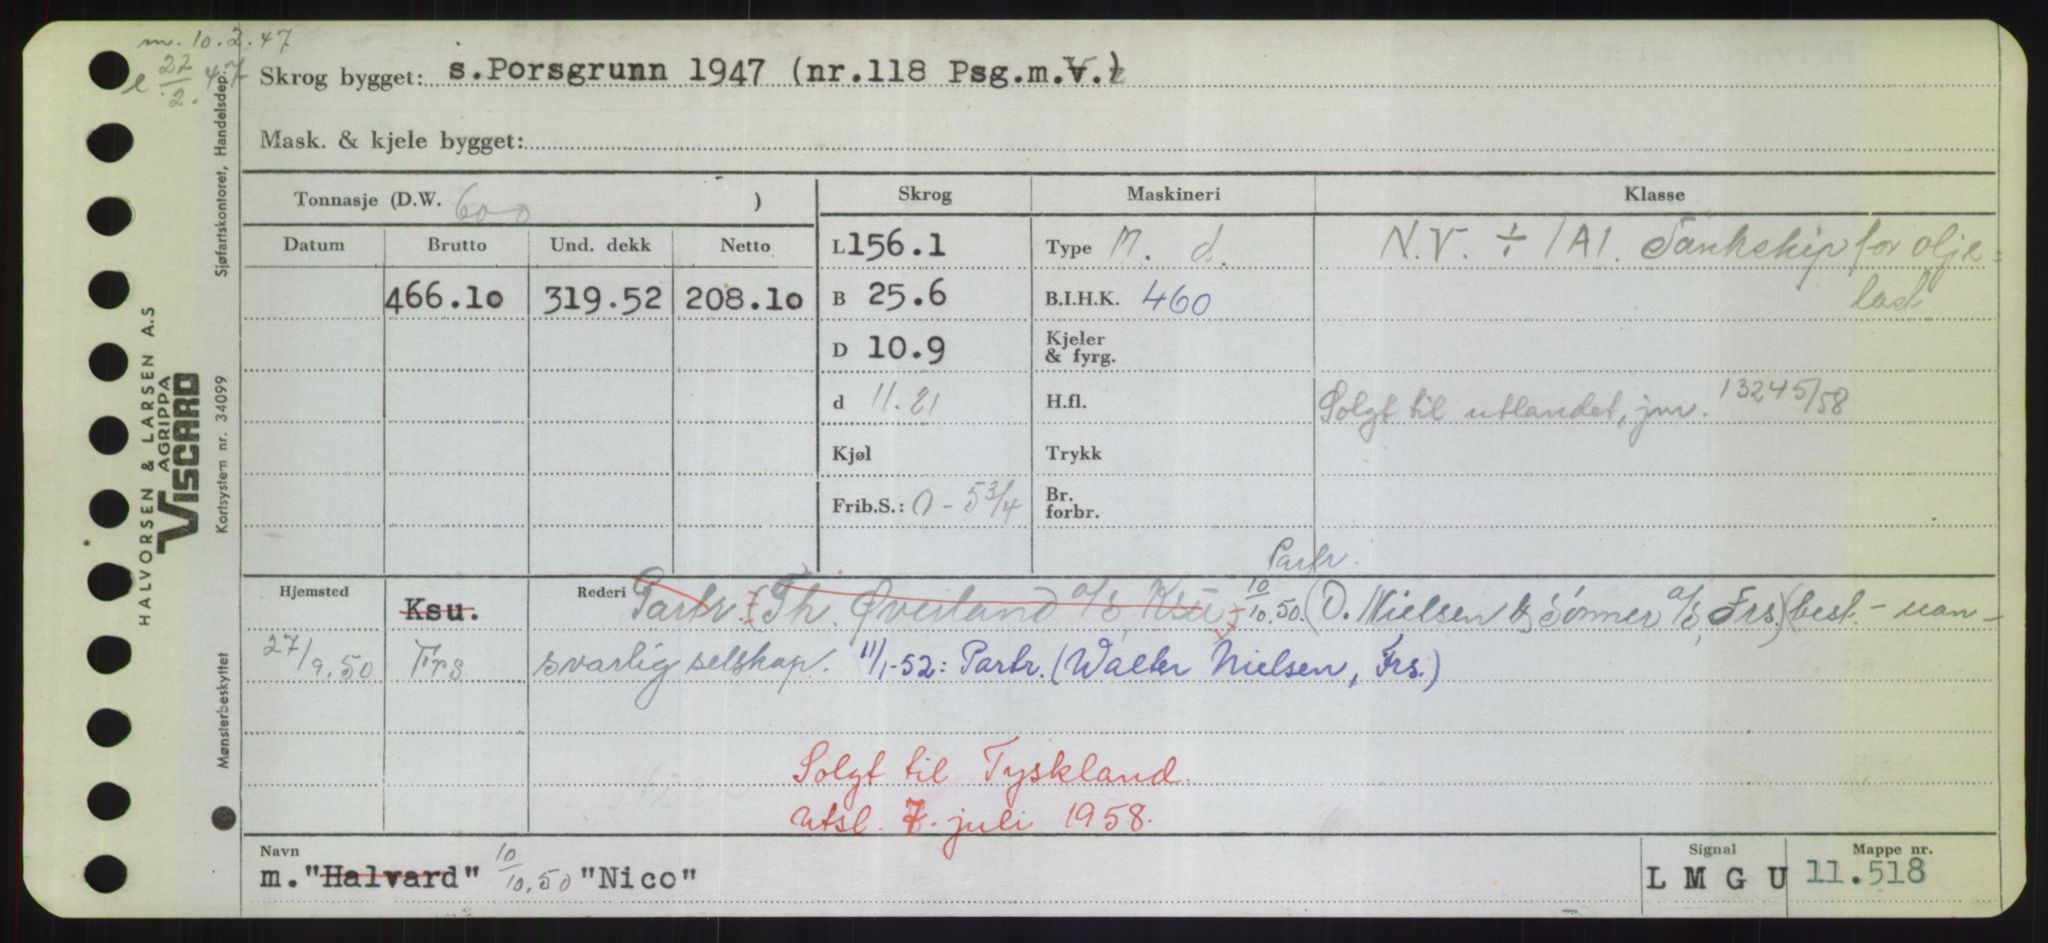 m. 10.2.47
e 22/2.47
Skrog bygget: s.Porsgrunn 1947 (nr.118 Psg.m.V.)
Mask. & kjele bygget:
Tonnasje (D.W. 600 )
Skrog Maskineri Klasse
Datum Brutto Und. dekk Netto
L 156.1 Type M. d. N.V. ÷ 1A1. Tankskip for olje=
466.10 319.52 208.10 B 25.6 B.I.H.K. 460 last
D 10.9 Kjeler & fyrg.
d 11.21 H.fl. Solgt til utlandet, jnr. 13245/58
Kjøl Trykk
Frib.S.: 0 - 5 3/4 Br. forbr.
Partr.
Hjemsted Ksu. Rederi Partr. (Th. Øverland a/s, Ksu) 10/10.50. (O. Nielsen & Sønner a/s, Frs.) (best. - uan-
27/9.50 Frs. svarlig selskap. 11/1-52: Partr. (Walter Nielsen, Frs.)
Solgt til Tyskland.
Utsl. 7. juli 1958.
Navn Signal Mappe nr.
m. "Halvard" 10/10.50 "Nico" L M G U 11.518
HALVORSEN & LARSEN A.S
AGRIPPA
VISCARD
Sjøfartskontoret, Handelsdep.
Kortsystem nr. 34099
Mønsterbeskyttet